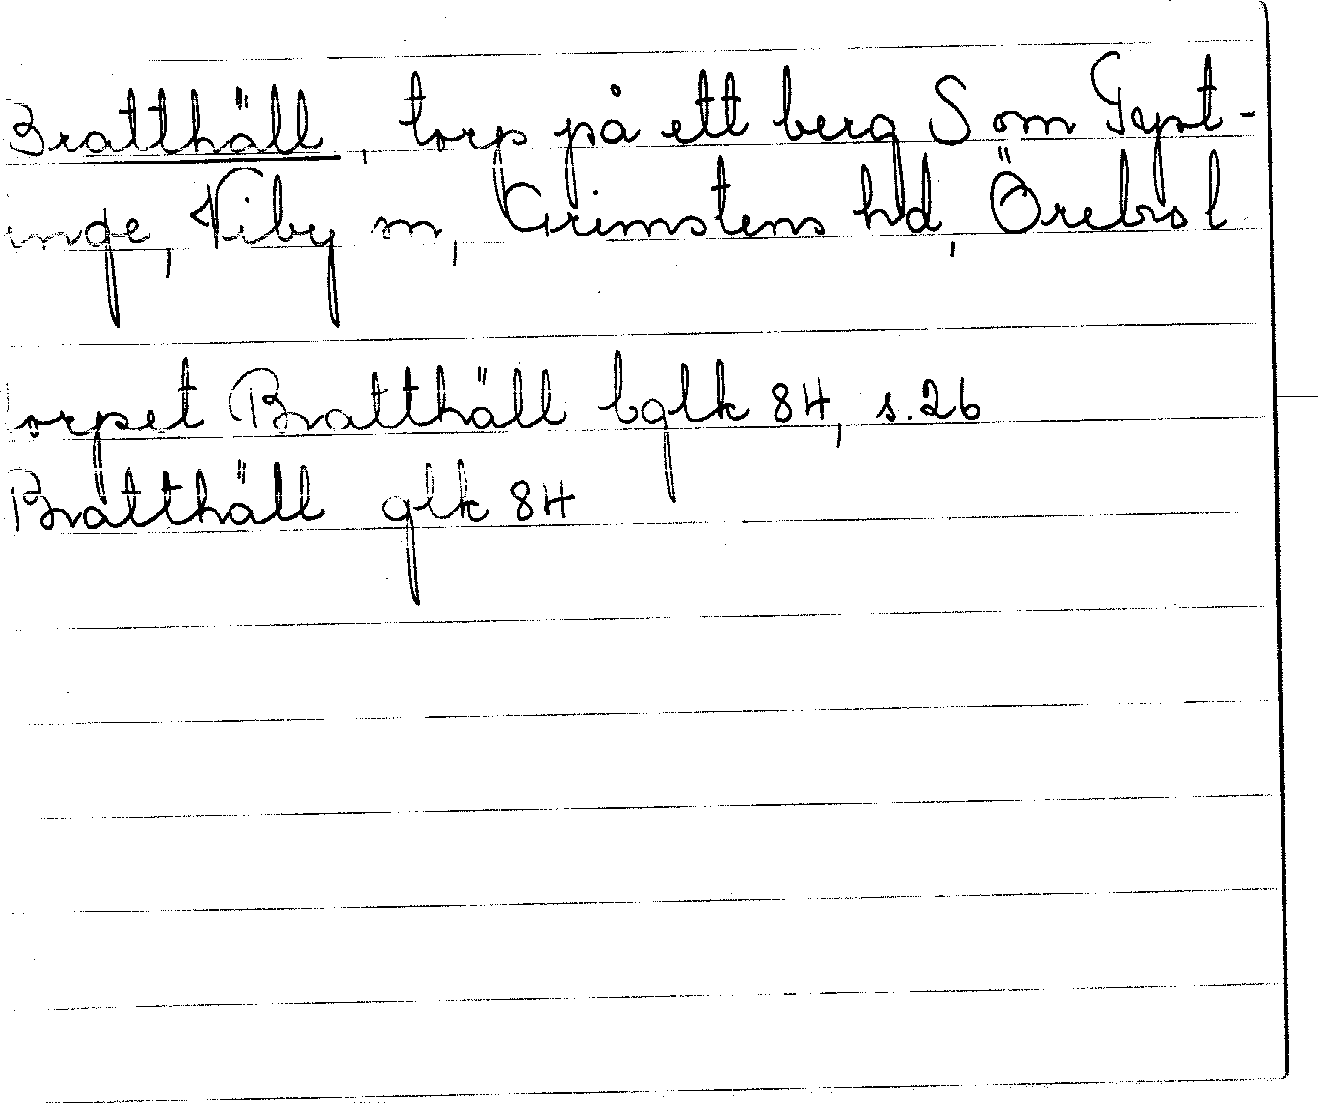 Bratthäll, torp på ett berg S om Tyst-
inge, Viby sn, Grimstens hd, Örebro l
torpet Bratthäll bglk 84, s. 26
Bratthäll glk 84